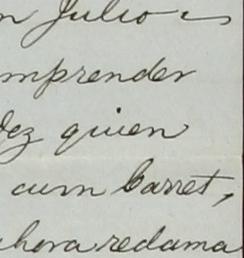 n Julio
mprender
dez quien
aun Carret,
ahora redama